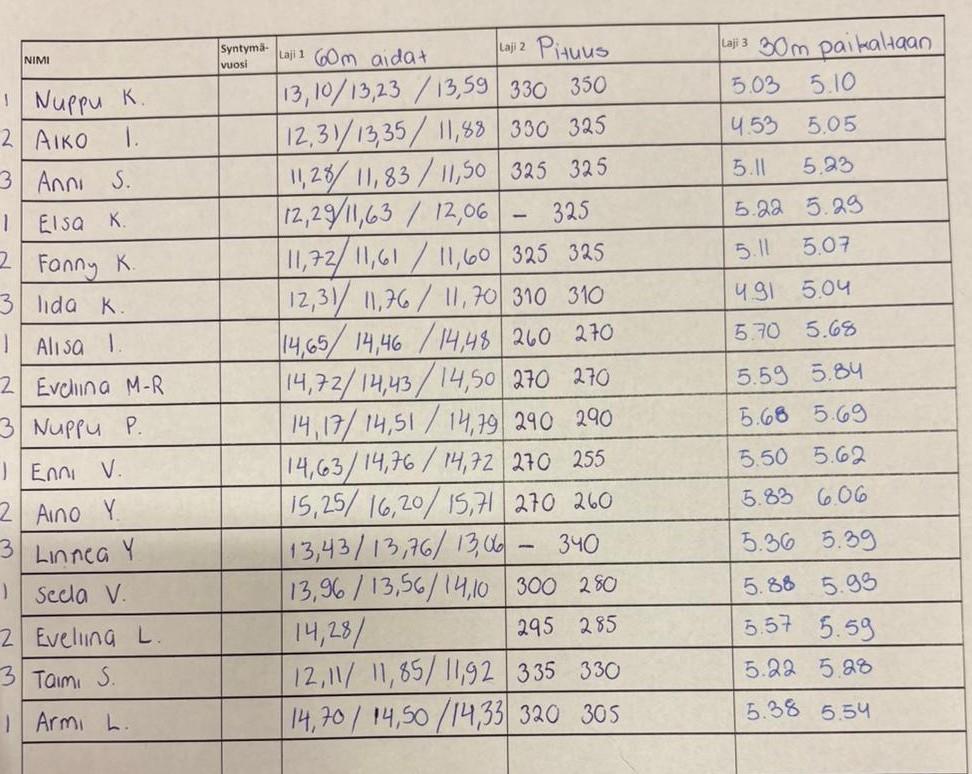 NIMI Syntymä-vuosi Laji 1 60m aidat Laji 2 Pituus Laji 3 30m paikaltaan
1 Nuppu K. 13,10/13,23 /13,59 330 350 5.03 5.10
2 AIKO I. 12,31/13,35/ 11,88 330 325 4.53 5.05
3 Anni S. 11,28/ 11,83 / 11,50 325 325 5.11 5.23
1 Elsa K. 12,29/11,63 / 12,06 – 325 5.22 5.29
2 Fanny K. 11,72/ 11,61 / 11,60 325 325 5.11 5.07
3 Iida K. 12,31/ 11,76 / 11,70 310 310 4.91 5.04
1 Alisa I. 14,65/ 14,46 / 14,48 260 270 5.70 5.68
2 Eveliina M-R 14,72/ 14,43 / 14,50 270 270 5.59 5.84
3 Nuppu P. 14,17/ 14,51 / 14,79 290 290 5.68 5.69
1 Enni V. 14,63/14,76 / 14,72 270 255 5.50 5.62
2 Aino Y. 15,25/ 16,20/ 15,71 270 260 5.83 6.06
3 Linnea Y 13,43/13,76/ 13,06 – 340 5.36 5.39
1 Seela V. 13,96 / 13,56/ 14,10 300 280 5.88 5.93
2 Eveliina L. 14,28/ 295 285 5.57 5.59
3 Taimi S. 12,11/ 11,85/ 11,92 335 330 5.22 5.28
1 Armi L. 14,70/ 14,50 /14,33 320 305 5.38 5.54